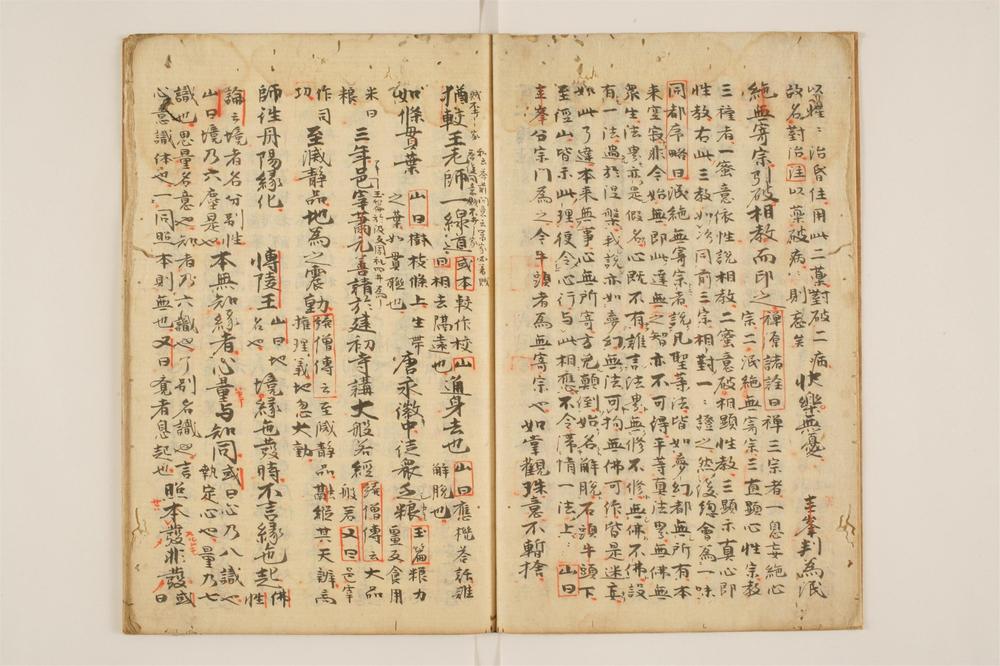 以惺〻治昏住用此二藥對破二病
故名對治注以藥破病〻則忘矣
快樂無憂 圭峯判為泯
絕無寄宗引破相教而印之
禪源諸詮曰禪三宗者一息妄絕心
宗二泯絕無寄宗三直顯心性宗教
三種者一蜜意依性說相教二蜜意破相顯性教三顯示真心即
性教右此三教如次同前三宗相對一〻證之然後總會為一味
同都序略曰泯絕無寄宗者說凡聖等法皆如夢幻都無所有本
來空寂非今始無即此達無之智亦不可得平等真法界無佛無
眾生法界亦是假名心既不有誰言法界無修不修無佛不佛設
有一法過於涅槃我說亦如夢幻無法可拘無佛可作皆是迷妄
如此了達本來無事心無所寄方免顛倒始名解脫石頭牛頭下
至徑山皆示此理便令心行與此相應不令滯情一法上〻山曰
圭峯公宗門為之令牛頭者為無寄宗也 如掌觀珠意不暫捨
猶較王老師一線道
或本較作校山
曰相去隔遠也
通身去也
山曰應機答話雖
解脫也
如條貫葉
山曰樹枝條上生帶
之葉如貫樞也
唐永徽中徒眾乏粮
玉篇粮力
量反食用
米曰
粮
三年邑宰蕭元善請於建初寺講大般若經
僧傳云大品
般若又曰邑宰
作司
功
至滅靜品地為之震動
僧傳云至滅靜品
推理義地忽大動
師誑丹陽緣化
博陵王
山曰地
名也
境緣色發時不言緣色起
佛
性
論云境者名分別性
山曰境乃六塵是也
本無知緣者心量与知同
或曰心乃八識也
執定心也量乃七
識也思量名意也知者乃六識也了別名識也言
心意識体也一同照本則無也又曰覓者息起也
照本發非發
或
曰